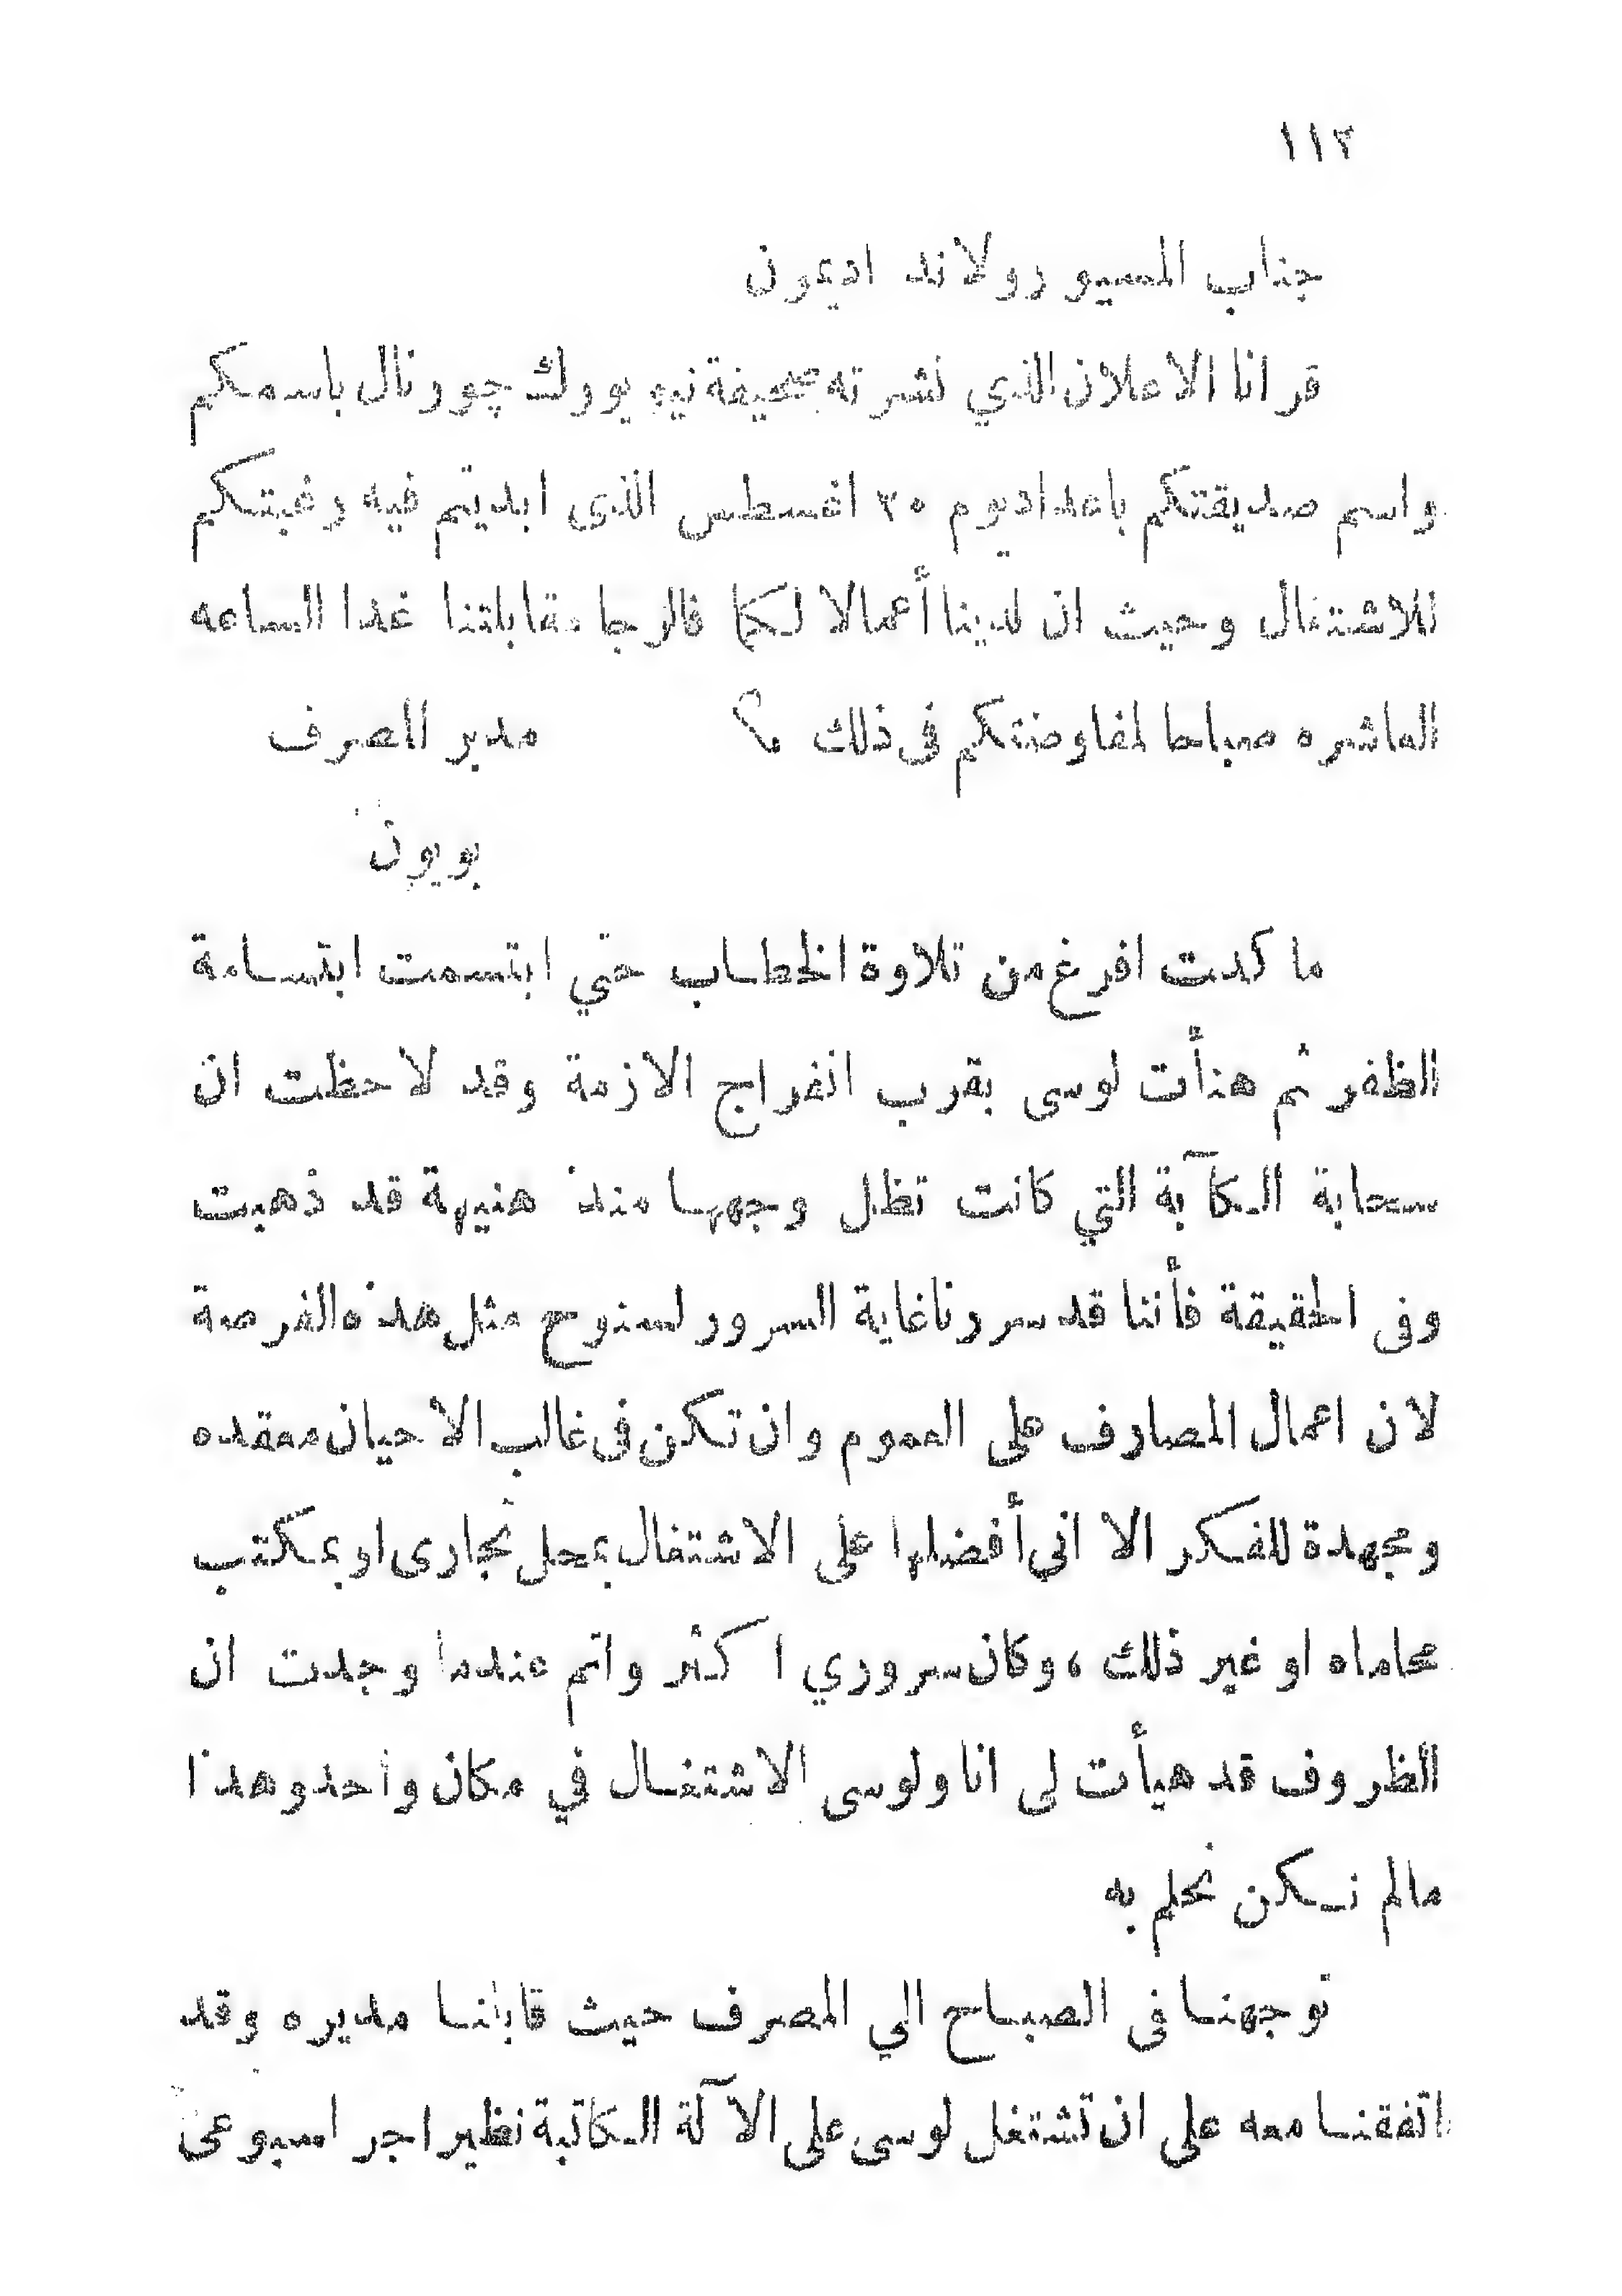 ١١٢
جناب المسيو رولاند اديمون
قرانا الاعلان الذي نشرته بصحيفة نيو يورك چورنال باسمكم
واسم صديقتكم باعداد يوم ٣٠ اغسطس الذى ابديتم فيه رغبتكم
للاشتغال وحيث ان لدينا أعمالا لكما فالرجا مقابلتنا غدا الساعه
العاشره صباحا لمفاوضتكم فى ذلك مدير المصرف
بويون
ما كدت افرغ من تلاوة الخطاب حتي ابتسمت ابتسامة
الظفر ثم هنأت لوسى بقرب انفراج الازمة وقد لاحظت ان
سحابة الكآبة التي كانت تظل وجهها منذ هنيهة قد ذهبت
وفى الحقيقة فأننا قد سررنا غاية السرور لسنوح مثل هذه الفرصة
لان اعمال المصارف على العموم وان تكن فى غالب الاحيان معقده
ومجهدة للفكر الا اني أفضلها على الاشتغال بمحل تجارى او بمكتب
محاماه او غير ذلك ، وكان سروري اكثر واتم عندما وجدت ان
الظروف قد هيأت لى انا ولوسى الاشتغال في مكان واحد وهذا
مالم نكن نحلم به
توجهنا فى الصباح الي المصرف حيث قابلنا مديره وقد
اتفقنا معه على ان تشتغل لوسى على الآلة الكاتبة نظير اجر اسبوعى